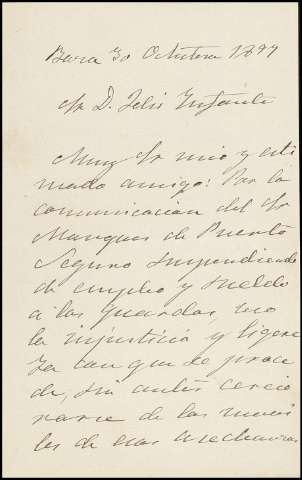 Baza 30 Octubre 1899
Sr D. Felix Infante
Muy Sr mio y esti
mado amigo: Por la
comunicacion del Sr
Marques de Puerto
Seguro suspendiendo
de empleo y sueldo
a los guardas, veo
la injusticia y ligere
za con que se proce
de, sin antes cercio
rarse de los move
les de esas